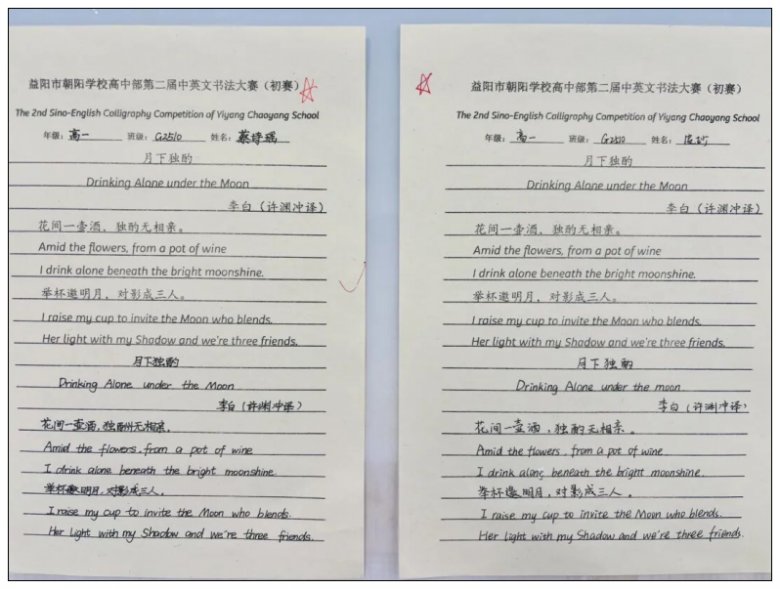 益阳市朝阳学校高中部第二届中英文书法大赛（初赛）
The 2nd Sino-English Calligraphy Competition of Yiyang Chaoyang School
年级：高一 班级：G2510 姓名：
月下独酌
Drinking Alone under the Moon
李白（许渊冲译）
花间一壶酒，独酌无相亲。
Amid the flowers, from a pot of wine
I drink alone beneath the bright moonshine.
举杯邀明月，对影成三人。
I raise my cup to invite the Moon who blends.
Her light with my Shadow and we're three friends.
月下独酌
Drinking Alone under the Moon
李白（许渊冲译）
花间一壶酒，独酌无相亲。
Amid the flowers, from a pot of wine
I drink alone beneath the bright moonshine
举杯邀明月，对影成三人。
I raise my cup to invite the Moon who blends.
Her light with my Shadow and we're three friends.
益阳市朝阳学校高中部第二届中英文书法大赛（初赛）
The 2nd Sino-English Calligraphy Competition of Yiyang Chaoyang School
年级：高一 班级：G2510 姓名：
月下独酌
Drinking Alone under the Moon
李白（许渊冲译）
花间一壶酒，独酌无相亲。
Amid the flowers, from a pot of wine
I drink alone beneath the bright moonshine.
举杯邀明月，对影成三人。
I raise my cup to invite the Moon who blends.
Her light with my Shadow and we're three friends.
月下独酌
Drinking Alone under the moon
李白（许渊冲译）
花间一壶酒，独酌无相亲。
Amid the flowers, from a pot of wine
I drink alone beneath the bright moonshine.
举杯邀明月，对影成三人。
I raise my cup to invite the Moon who blends.
Her light with my Shadow and we're three friends.